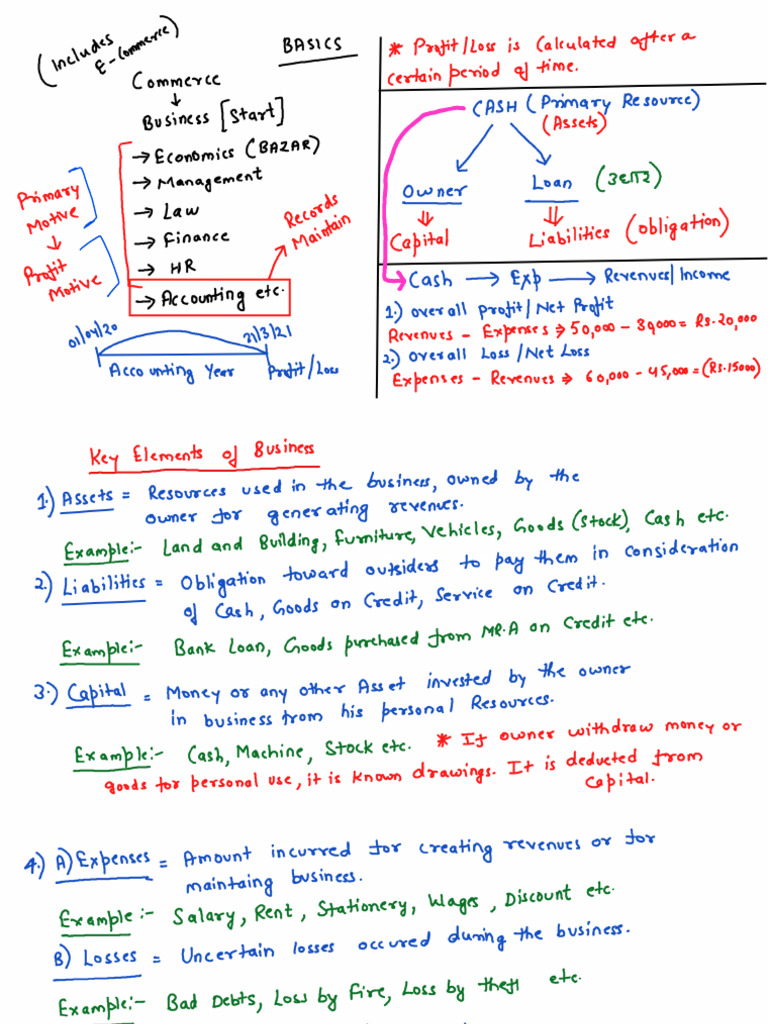 (Includes E-Commerce)
BASICS
Commerce
↓
Business [Start]
→ Economics (BAZAR)
→ Management
→ Law
→ Finance
→ HR
→ Accounting etc.
Primary
Motive
↓
Profit
Motive
Records
Maintain
01/04/20
31/3/21
Accounting Year
Profit/Loss
* Profit/Loss is Calculated after a
certain period of time.
CASH (Primary Resource)
(Assets)
Owner
Loan (उधार)
⇓
⇓
Capital
Liabilities (obligation)
Cash → Exp → Revenues/Income
1.) overall profit/Net Profit
Revenues - Expenses ⇒ 50,000 - 30,000 = Rs. 20,000
2.) overall Loss/Net Loss
Expenses - Revenues ⇒ 60,000 - 45,000 = (Rs.15000)
Key Elements of Business
1.) Assets = Resources used in the business, owned by the
owner for generating revenues.
Example:- Land and Building, Furniture, Vehicles, Goods (Stock), Cash etc.
2.) Liabilities = Obligation toward outsiders to pay them in consideration
of Cash, Goods on Credit, Service on Credit.
Example:- Bank Loan, Goods purchased from MR.A on Credit etc.
3.) Capital = Money or any other Asset invested by the owner
in business from his personal Resources.
Example:- Cash, Machine, Stock etc. * If owner withdraw money or
goods for personal use, it is known drawings. It is deducted from
Capital.
4.) A) Expenses = Amount incurred for creating revenues or for
maintaing business.
Example:- Salary, Rent, Stationery, Wages, Discount etc.
B) Losses = Uncertain losses occured during the business.
Example:- Bad Debts, Loss by Fire, Loss by theft etc.